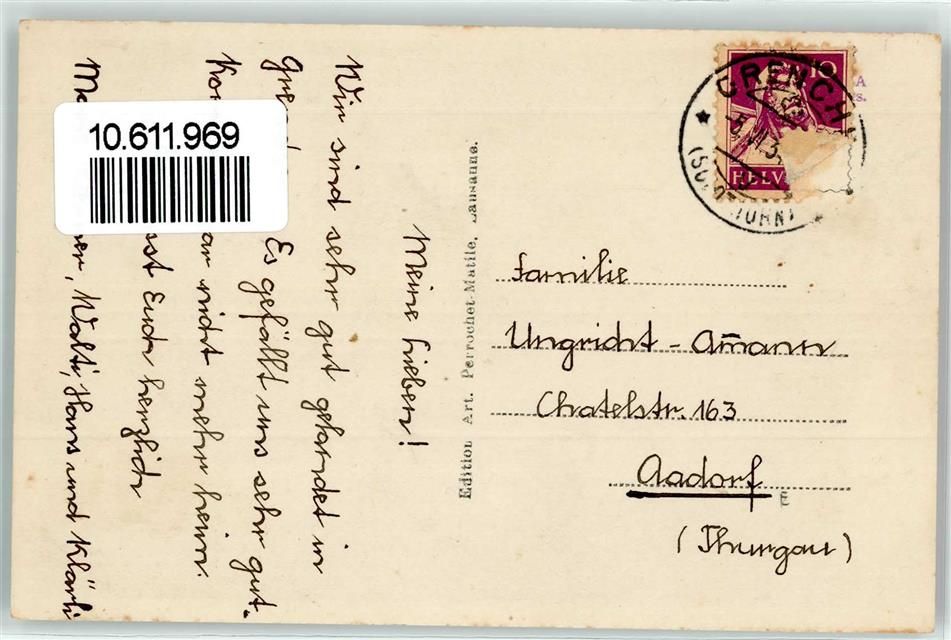 10.611.969
Meine Lieben!
Wir sind sehr gut gelandet in
Gre
Es gefällt uns sehr gut.
Ko
ar nicht mehr heim.
sst Euch herzlich
er, Walti, Hans und Klärli
Edition Art. Perrochet-Matile, Lausanne.
10
HELV
GRENCH
(SOLOTHURN)
Familie
Ungricht - Am̄ann
Chatelstr. 163
Aadorf
E
(Thurgau)